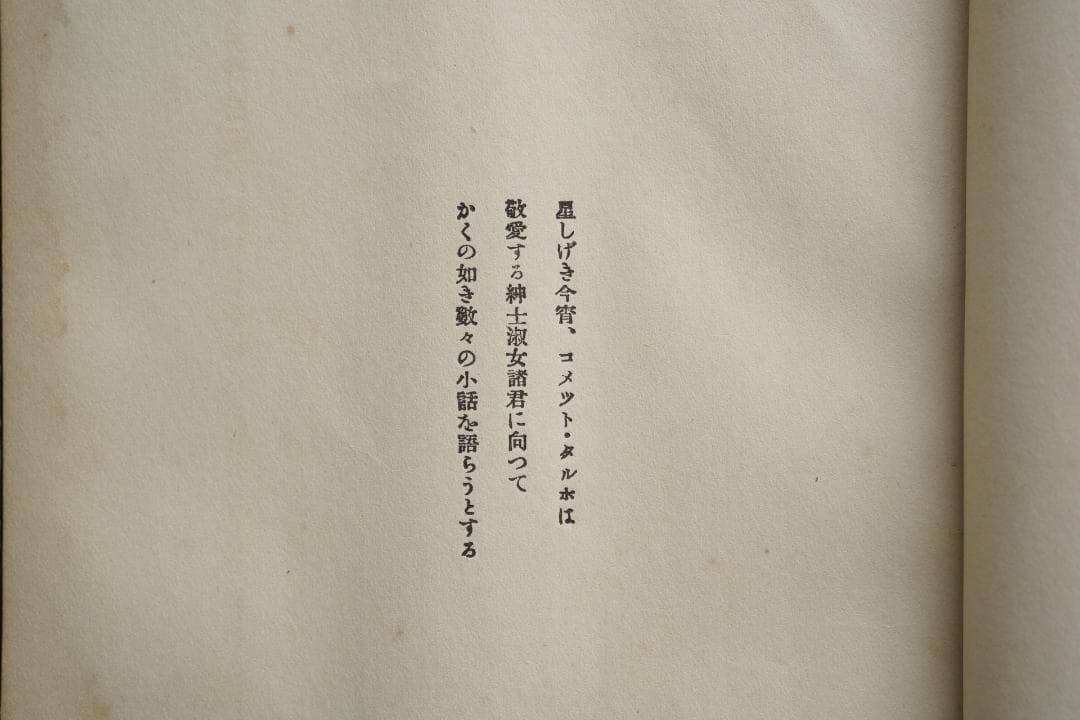 星しげき今宵、コメツト・タルホは
敬愛する紳士淑女諸君に向つて
かくの如き數々の小話を語らうとする